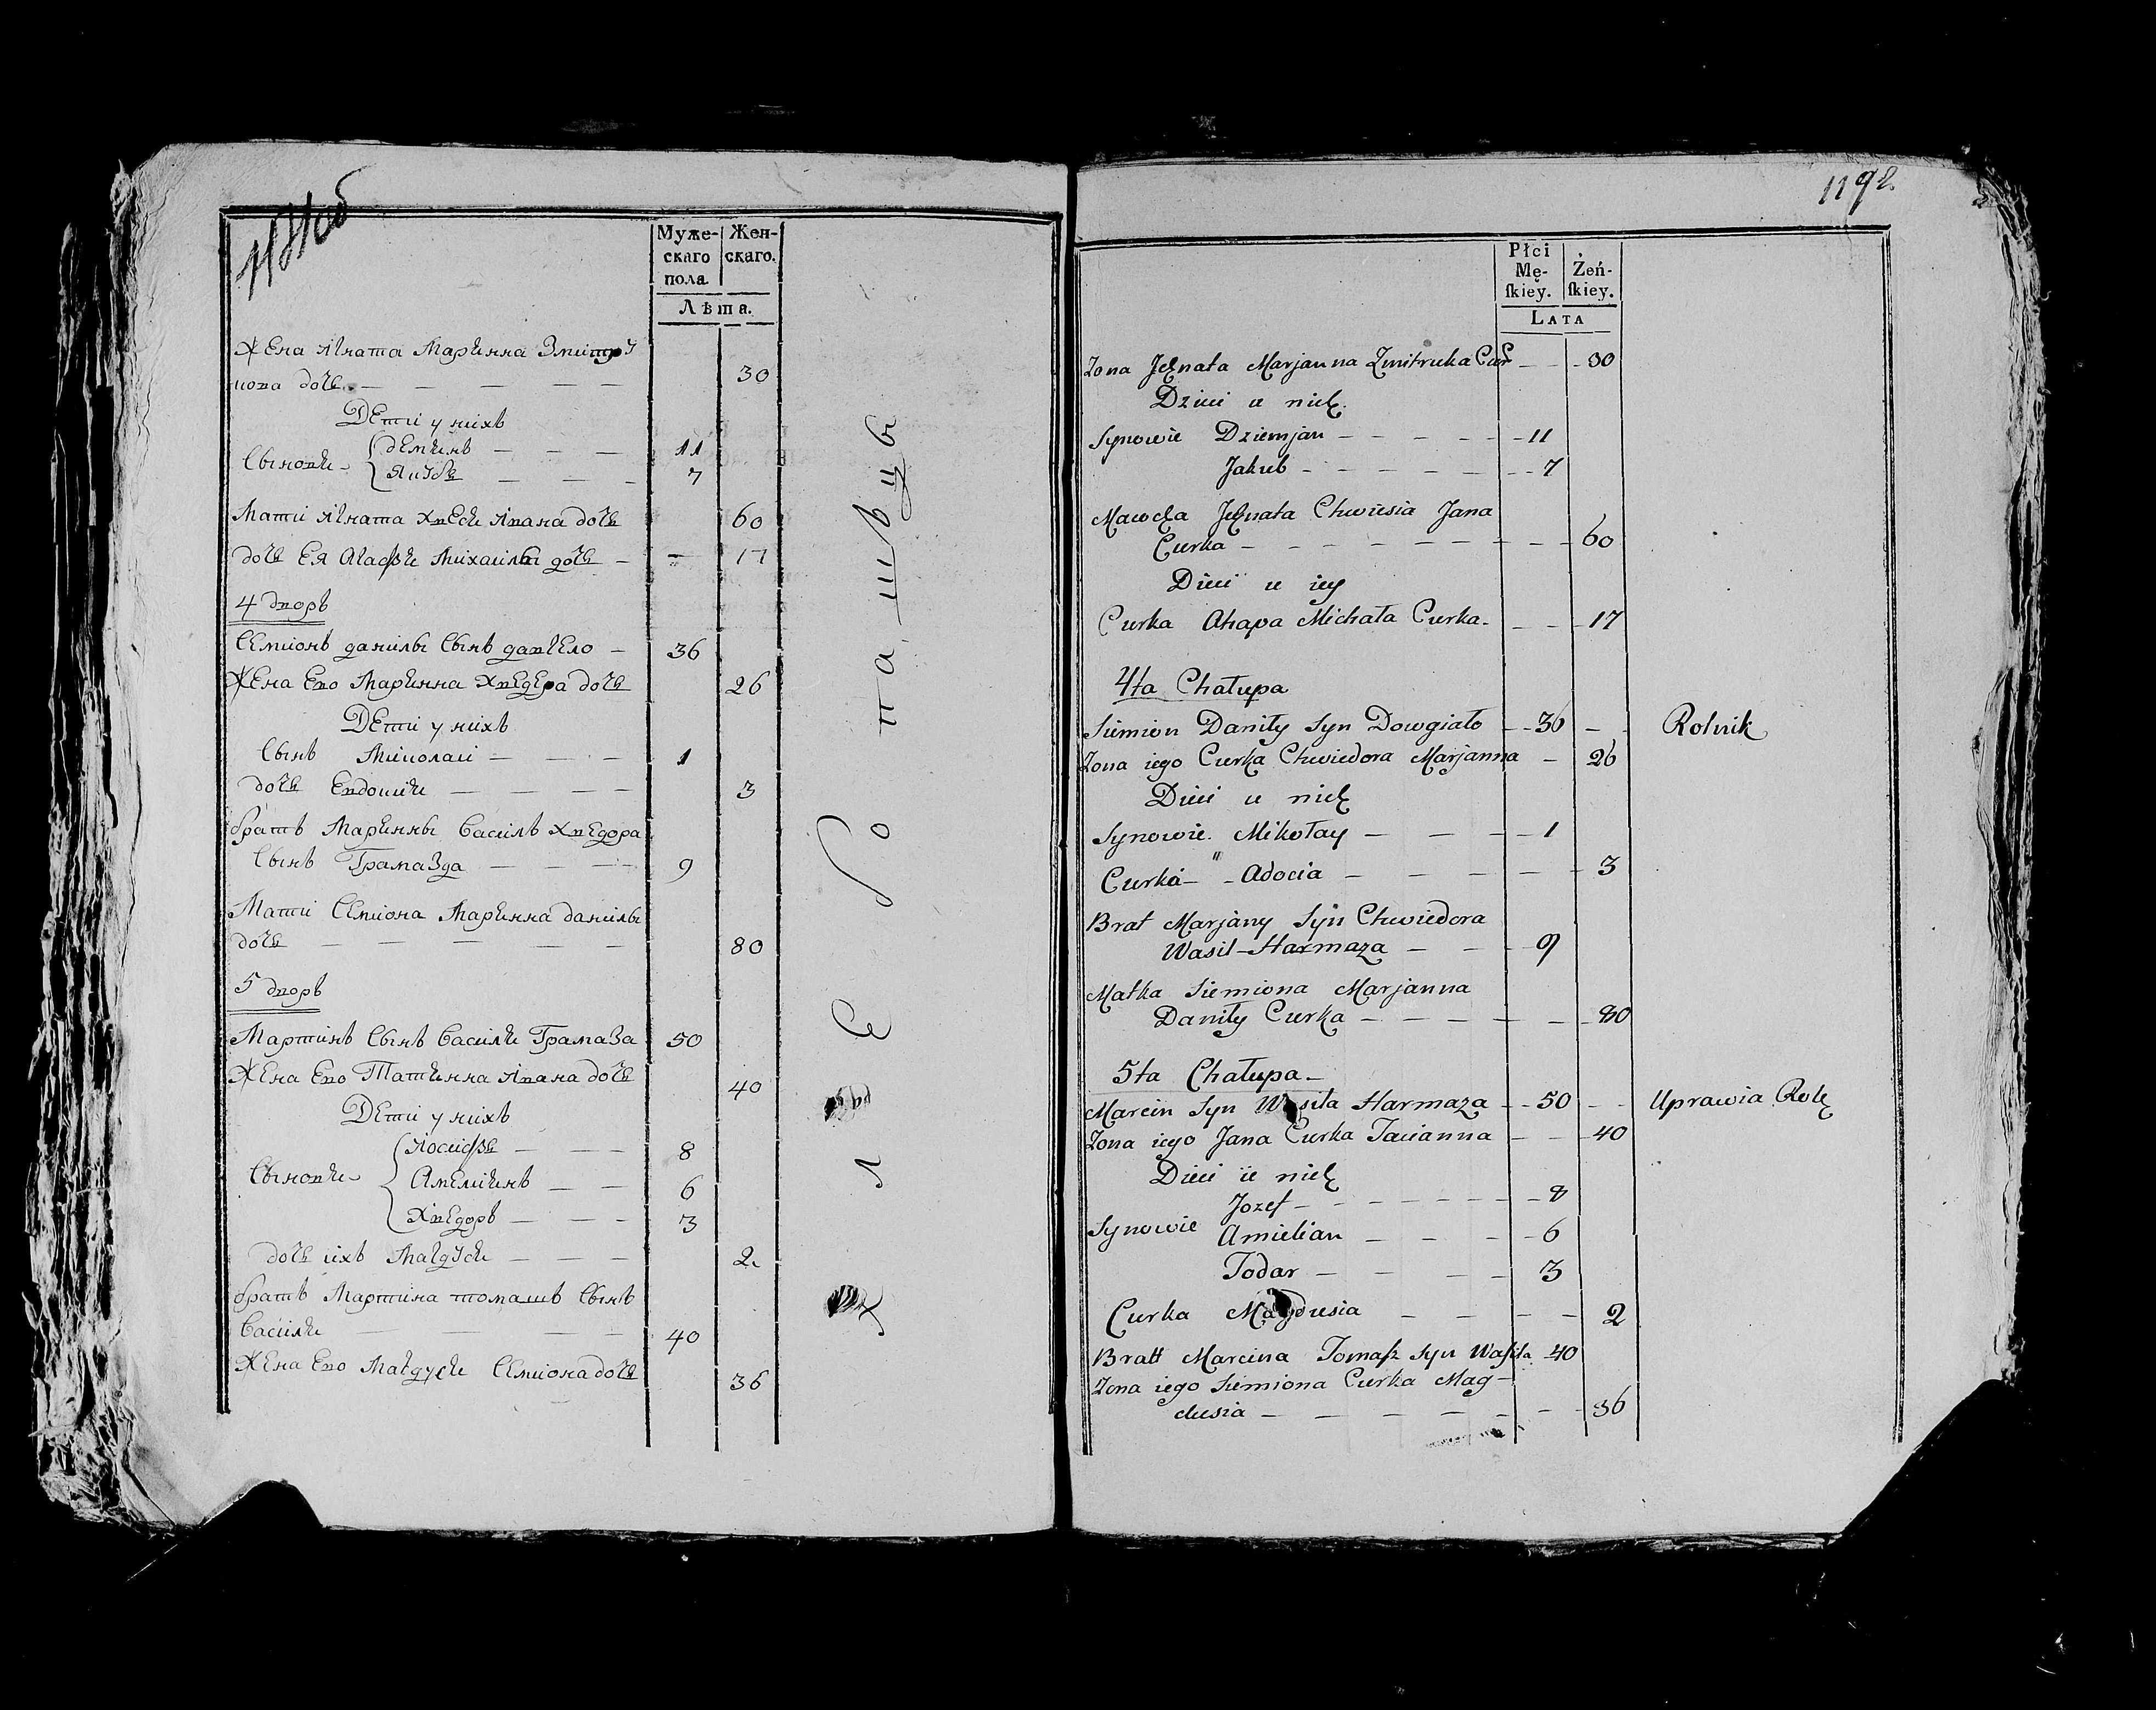 Муже-
скаго
пола
Жен-
скаго.
Лѣта.
Жена Агната Марьянна Змитру
кова дочь — — — — — 30
Дети у нихъ
Сыновьи { демьянъ — — — 11
Якубъ — — — 7
Мати Агната Хвеся Авана дочь 60
дочь Ея Агафья Михаилы дочь — — 17
4 дворъ
Семионъ данилы Сынъ — 36
Жена Ево Марьянна Хведера дочь 26
Дети у нихъ
Сынъ Миколаи — — — 1
дочь Евдокия — — — — 3
братъ Марьянны Василъ Хведора
Сынъ Грамазда — — — — 9
Мати Семиона Марьянна данилы
дочь — — — — — 80
5 дворъ
Мартинъ Сынъ Василя Грамаза 50
Жена Ево Татьянна Авана дочь 40
Дети у нихъ
Сыновьи { Иосифъ — — — 8
Амельянъ — — 6
Хведоръ — — — 3
дочь ихъ Магдуся — — — 2
братъ Мартина томашъ Сынъ
Василя — — — — 40
Жена Ево Магдуся Семиона дочь 36
Хлебопашѣцы
1192
Płci
Mę-
ſkiey.
Żeń-
ſkiey.
LATA
Zona Jehnata Marjanna Zmitruka Cur — — 30
Dzieci u nich
Synowie Dziemjan — — — — — 11
Jakub — — — — — — 7
Mawcha Jehnata Chwiesia Jana
Curka — — — — — — — — 60
Dieci u iey
Curka Ahapa Michała Curka — — — 17
4ta Chałupa
Siemion Daniły Syn Dowgiało — 36 — — Rolnik
Zona iego Curka Chwiedora Marjanna — 26
Dieci u nich
Synowie Mikołay — — — — 1
Curka — — Adocia — — — — — 3
Brat Marjany Syn Chwiedora
Wasil Harmaza — — — 9
Matka Siemiona Marjanna
Daniły Curka — — — — — — 80
5ta Chałupa —
Marcin Syn Wasila Harmaza — 50 — — Uprawia Rolę
Zona iego Jana Curka Tacianna — — 40
Dieci u nich
Jozef — — — — — — 8
Synowie Amielian — — — — 6
Todar — — — — 3
Curka Magdusia — — — — 2
Bratt Marcina Tomaſz Syn Waſila 40
Zona iego Siemiona Curka Mag-
dusia — — — — — — — 36